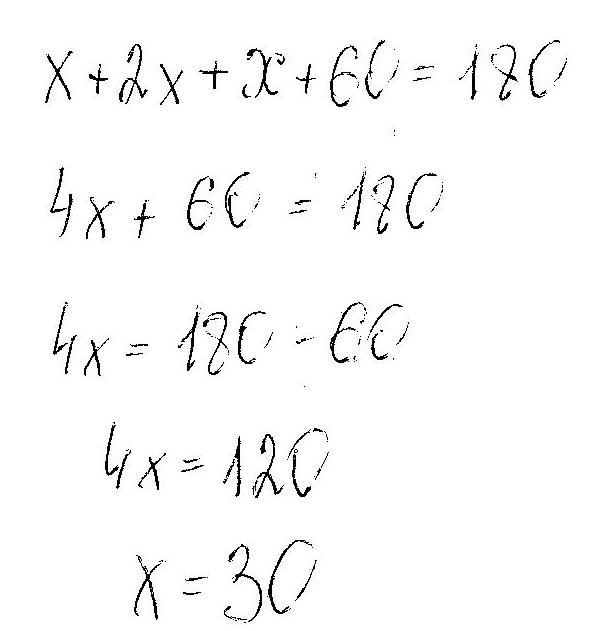 x+2x+x+60=180
4x+60=180
4x=180-60
4x=120
x=30